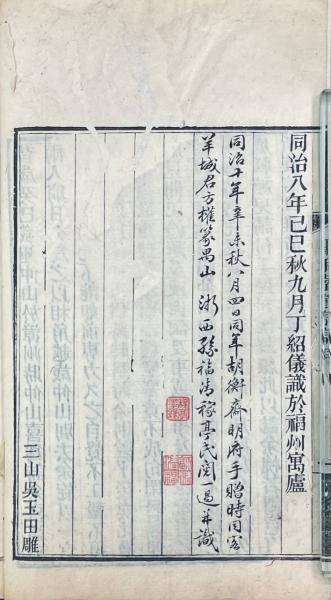 同治八年己巳秋九月丁紹儀識於福州寓廬
同治十年辛未秋八月四日同年胡衡齋明府手貽時同客
羊城君方權篆禺山浙西孫福清稼亭氏閱一過并識
三山吳玉田雕